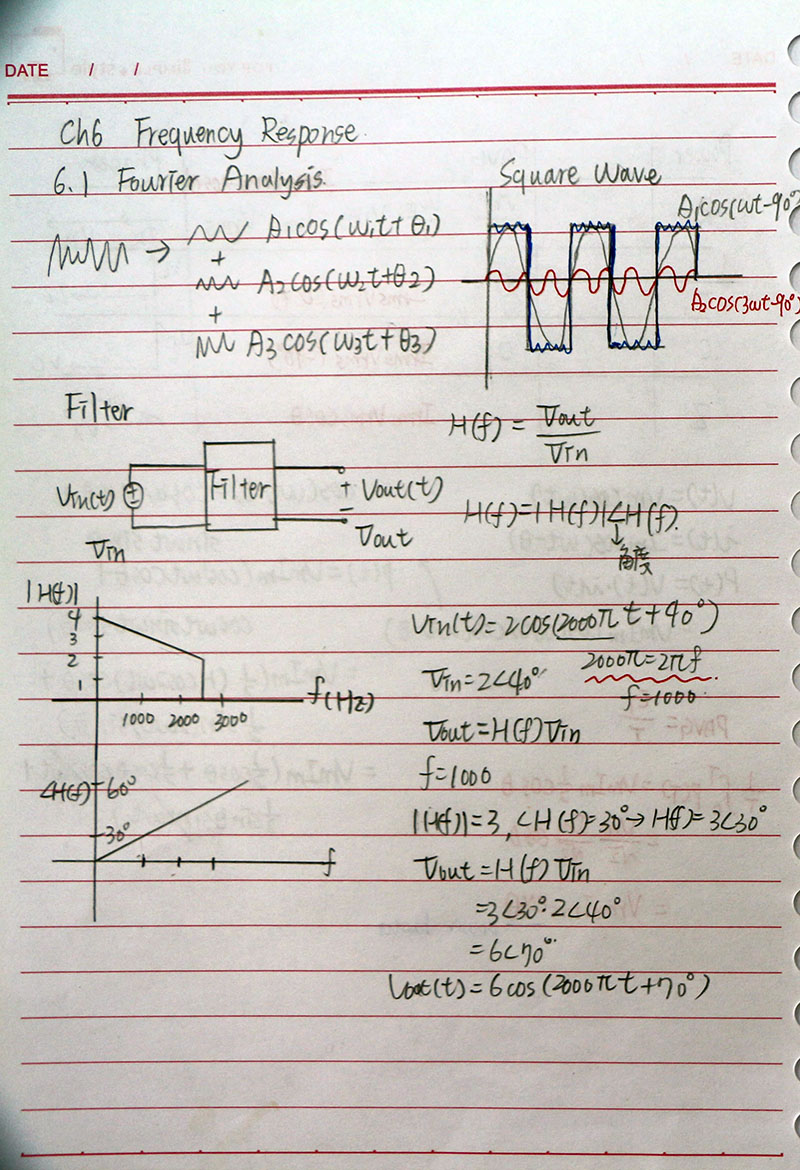 DATE / /
Ch6 Frequency Response.
6.1 Fourier Analysis.
→ A1cos(ω1t+θ1)
+
A2cos(ω2t+θ2)
+
A3cos(ω3t+θ3)
Square Wave
A1cos(ωt-90°
A2cos(3ωt-90°)
Filter
Vin(t)
±
Filter
+
−
Vout(t)
Vin
Vout
H(f) = Vout/Vin
H(f)=|H(f)|∠H(f).
↓
角度
|H(f)|
4
3
2
1
1000 2000 3000
f(Hz)
∠H(f)
60°
30°
f
Vin(t)=2cos(2000πt+40°)
Vin=2<40°
2000π=2πf
f=1000.
Vout=H(f)Vin
f=1000
|H(f)|=3, <H(f)=30°→H(f)=3<30°
Vout=H(f)Vin
=3<30°·2<40°
=6<70°
Vout(t)=6cos(2000πt+70°)